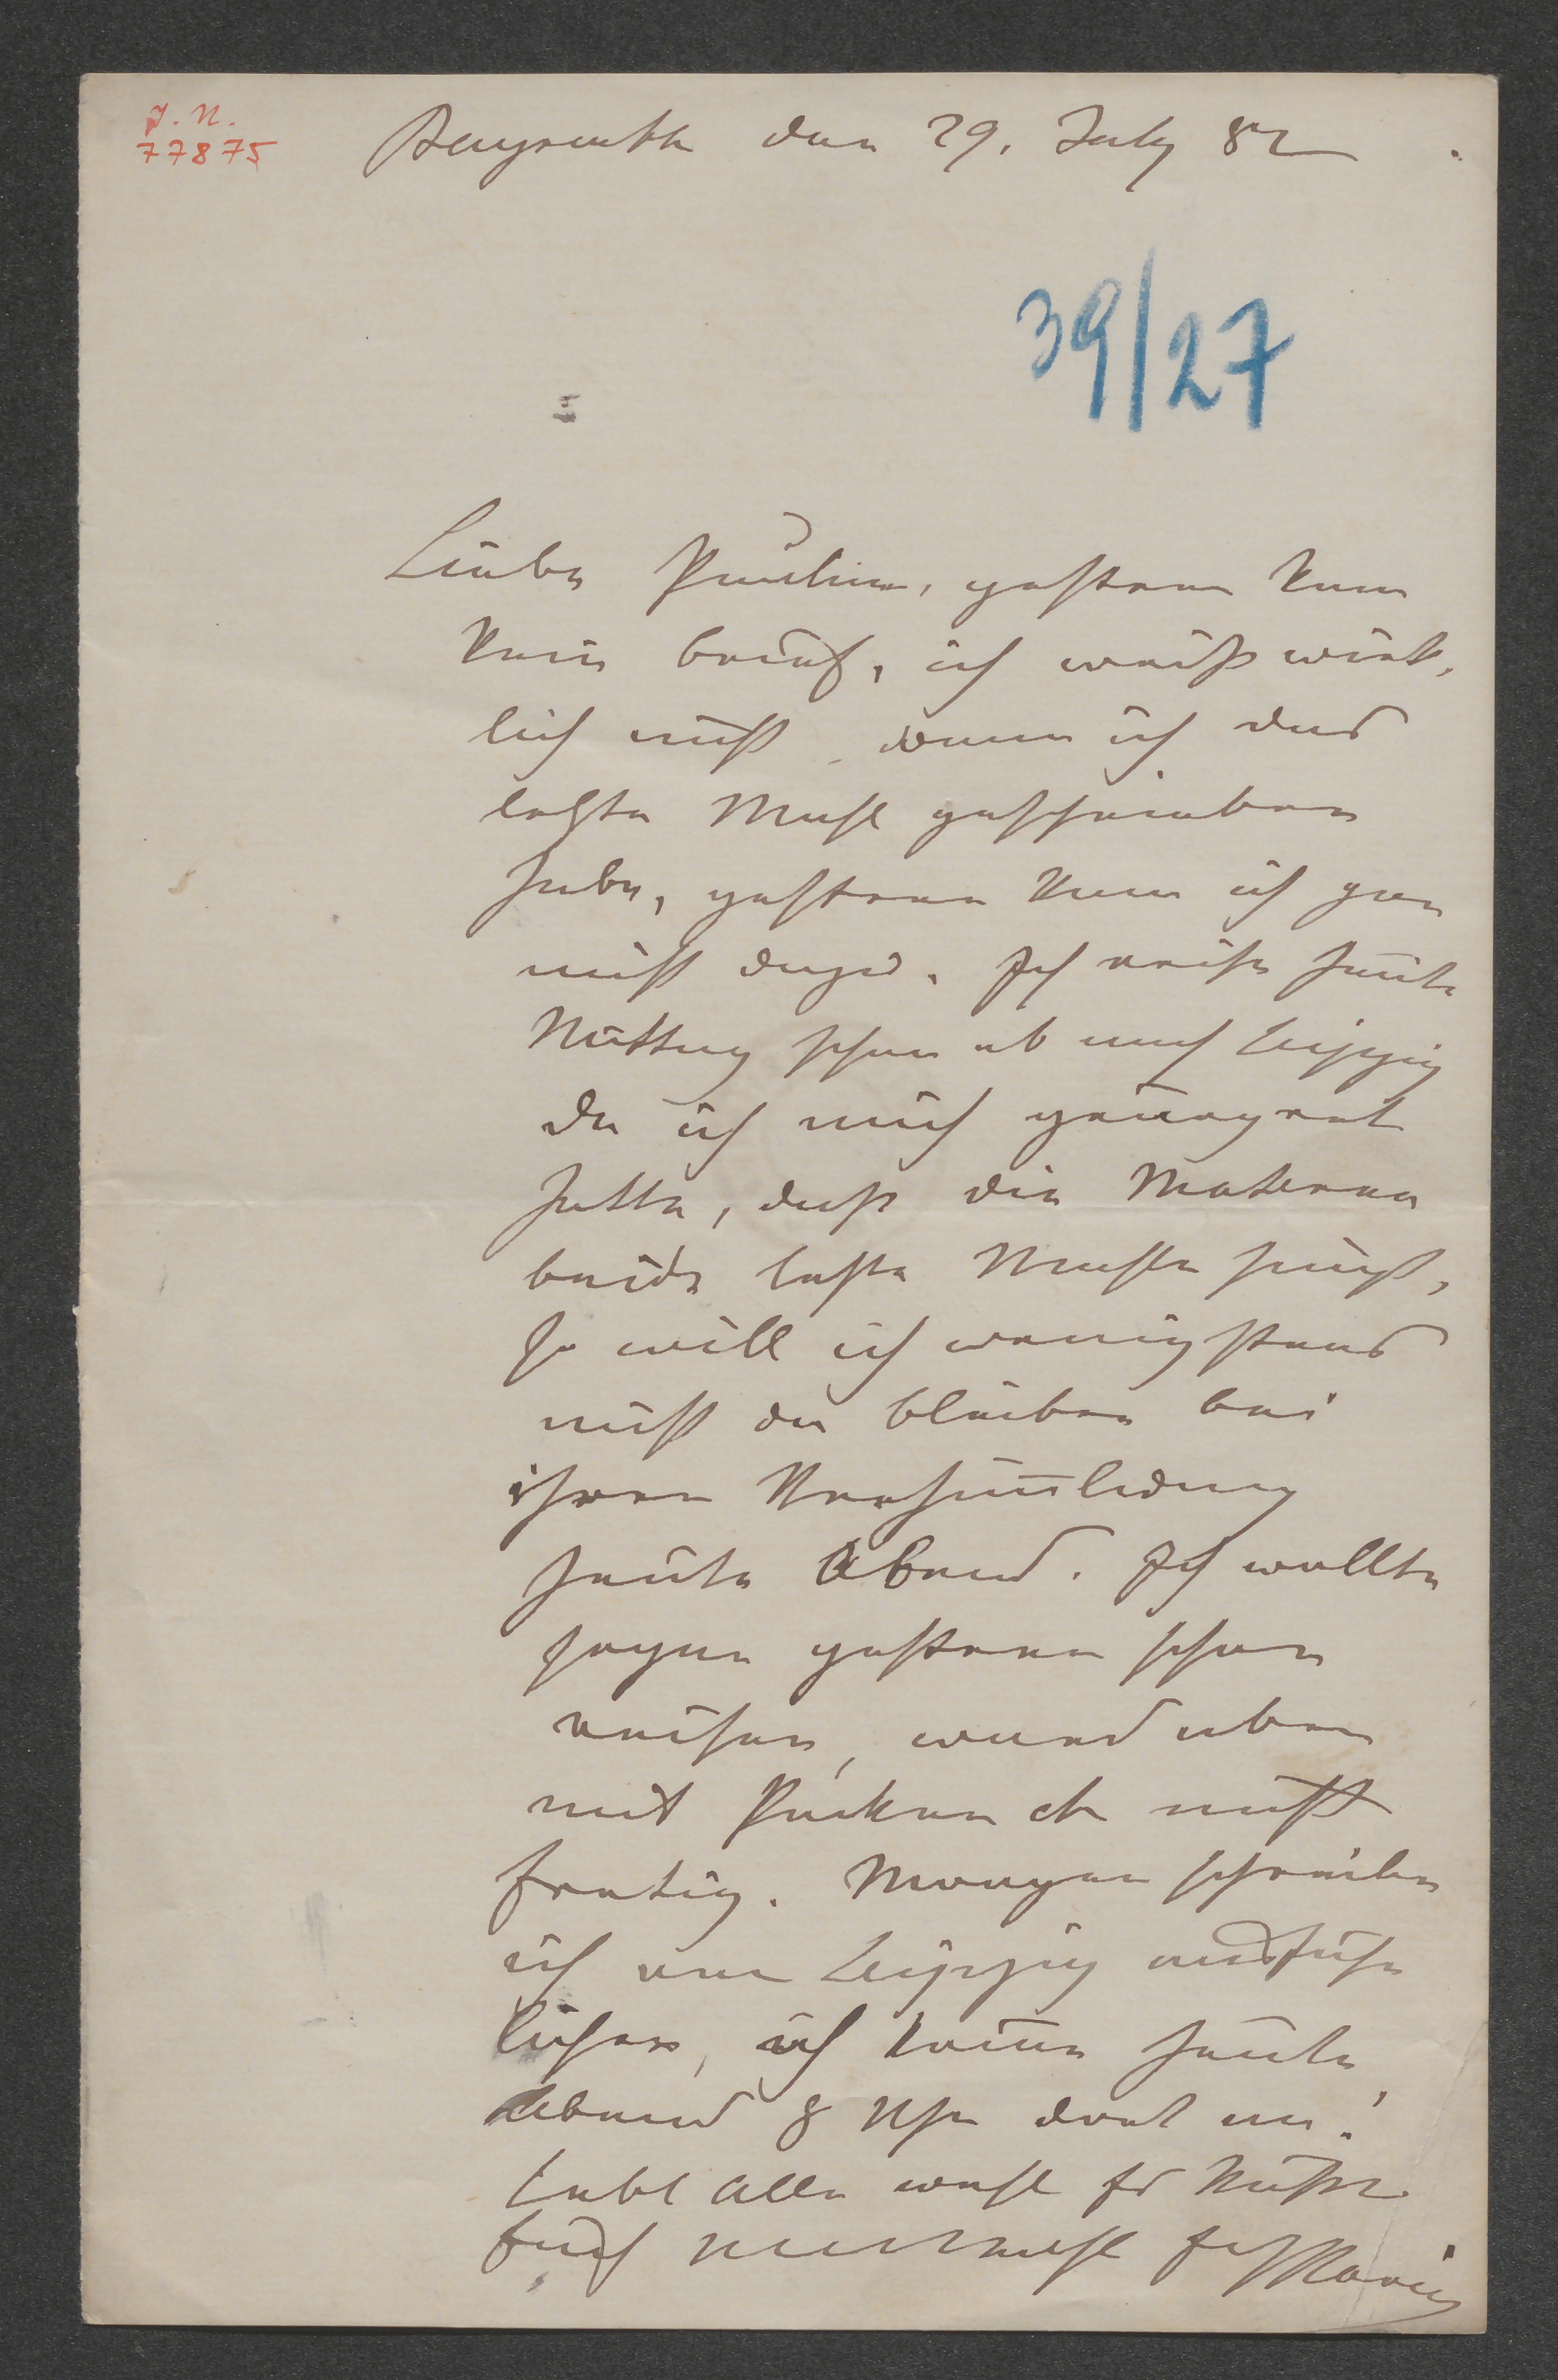 J. N.
77875
Bayreuth den 29. July 82
39/27
Liebe Pauline, gestern kam
kein Brief, ich weiß wirk-
lich nicht wann ich das
letzte Mahl geschrieben
habe, gestern kam ich gar
nicht dazu. Ich reise heute
Mittag schon ab nach Leipzig
da ich mich geärgert
hatte, daß die Materna
beide letzte Mahle singt,
so will ich wenigstens
nicht da bleiben bei
ihrer
heute Abend. Ich wollte
sogar gestern schon
reisen, ward aber
mit Packen etc nicht
fertig. Morgen schreibe
ich von Leipzig ausführ
licher, ich komme heute
Abend 8 Uhr dort an!
Lebt alle wohl es küßt
Euch Marie